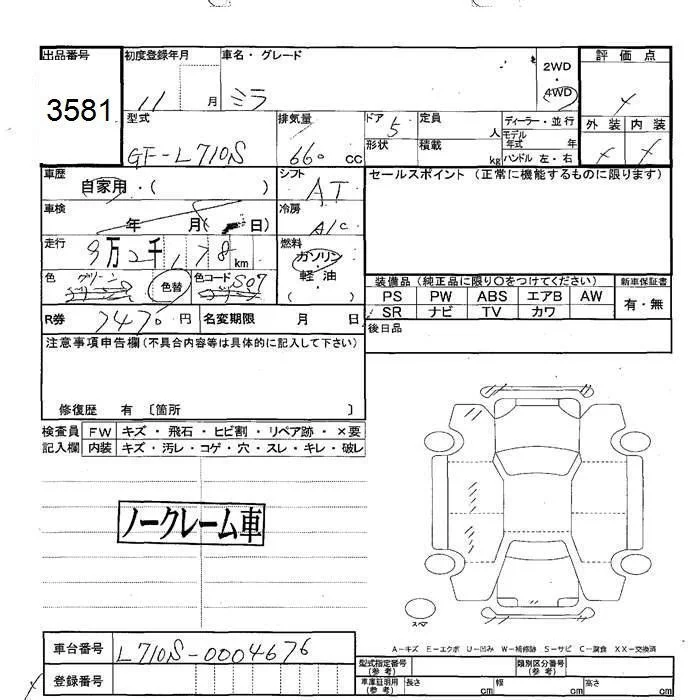 出品番号 初度登録年月 車名・グレード 評価点
3581 11 月 ミラ 2WD
4WD
型式 排気量 ドア 定員 ディーラー・並行 外装 内装
GF-L710S 660 cc 5 人 モデル年式 年
形状 積載 kg ハンドル 左・右
車歴 シフト セールスポイント (正常に機能するものに限ります)
自家用・( ) AT
車検 年 月( 日) 冷房
A/C
走行 万 千 78 km 燃料
ガソリン
軽油
( )
色 グリーン 色替 色コード S07
装備品 (純正品に限り〇をつけてください) 新車保証書
PS PW ABS エアB AW 有・無
SR ナビ TV カワ
R券 7470 円 名変期限 月 日
後日品
注意事項申告欄(不具合内容等は具体的に記入して下さい)
修復歴 有 〔箇所 〕
検査員 FW キズ・飛石・ヒビ割・リペア跡・×要
記入欄 内装 キズ・汚レ・コゲ・穴・スレ・キレ・破レ
ノークレーム車
スペア
A-キズ E-エクボ U-凹み W-補修跡 S-サビ C-腐食 XX-交換済
車台番号 L710S-0004676
登録番号
型式指定番号(参考) 類別区分番号(参考)
車庫証明用(参考) 長さ cm 幅 cm 高さ cm